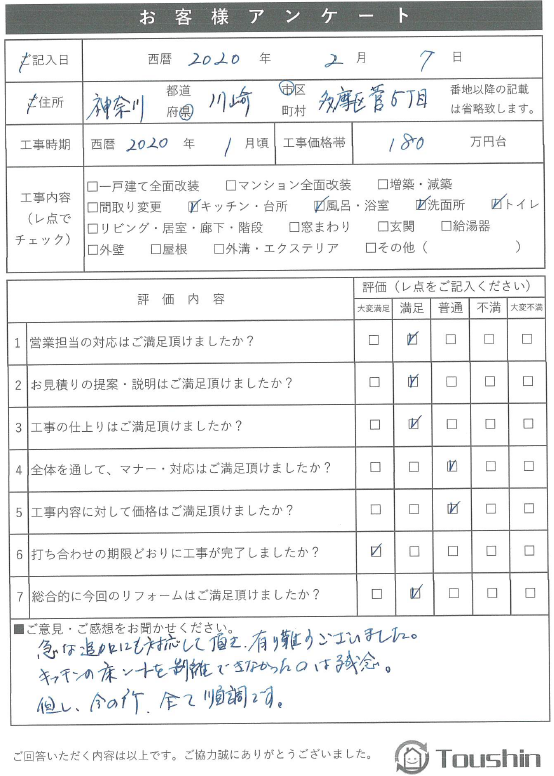 お客様アンケート
記入日 西暦 2020 年 2 月 7 日
住所 神奈川 都道府県 川崎 市区町村 多摩区菅5丁目 番地以降の記載は省略致します。
工事時期 西暦 2020 年 1 月頃 工事価格帯 180 万円台
工事内容（レ点でチェック）
□一戸建て全面改装 □マンション全面改装 □増築・減築
□間取り変更 ☑キッチン・台所 ☑風呂・浴室 ☑洗面所 ☑トイレ
□リビング・居室・廊下・階段 □窓まわり □玄関 □給湯器
□外壁 □屋根 □外溝・エクステリア □その他（ ）
評価内容 評価（レ点をご記入ください）
大変満足 満足 普通 不満 大変不満
1 営業担当の対応はご満足頂けましたか？ □ ☑ □ □ □
2 お見積りの提案・説明はご満足頂けましたか？ □ ☑ □ □ □
3 工事の仕上りはご満足頂けましたか？ □ ☑ □ □ □
4 全体を通して、マナー・対応はご満足頂けましたか？ □ □ ☑ □ □
5 工事内容に対して価格はご満足頂けましたか？ □ □ ☑ □ □
6 打ち合わせの期限どおりに工事が完了しましたか？ ☑ □ □ □ □
7 総合的に今回のリフォームはご満足頂けましたか？ □ ☑ □ □ □
■ご意見・ご感想をお聞かせください。
急な追加にも対応して頂き、有り難うございました。
キッチンの床シートを剥離できなかったのは残念。
但し、今の所、全て順調です。
ご回答いただく内容は以上です。ご協力誠にありがとうございました。
Toushin